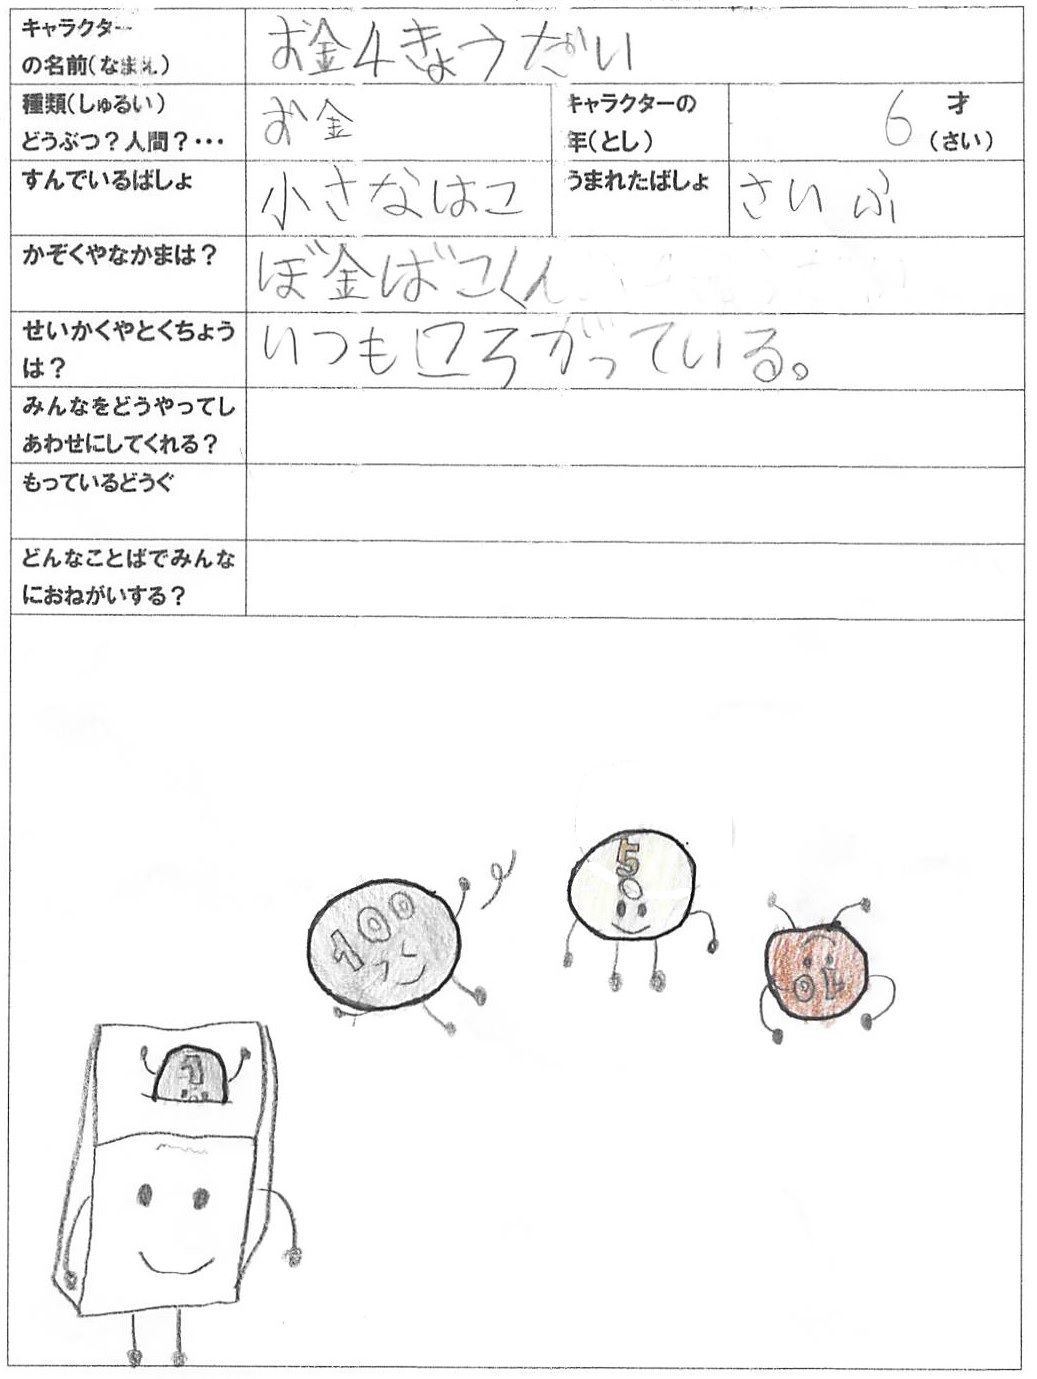 キャラクター
の名前(なまえ)
お金4きょうだい
種類(しゅるい)
どうぶつ?人間?・・・
お金
キャラクターの
年(とし)
6 才
(さい)
すんでいるばしょ
小さなはこ
うまれたばしょ
さいふ
かぞくやなかまは?
ぼ金ばこくん
せいかくやとくちょう
は?
いつもころがっている。
みんなをどうやってし
あわせにしてくれる?
もっているどうぐ
どんなことばでみんな
におねがいする?
100
50
10
1